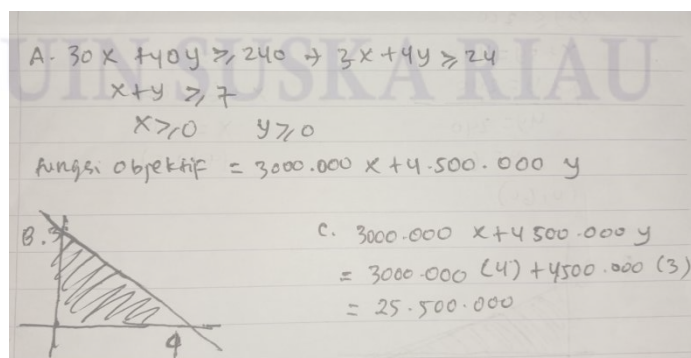 UIN SUSKA RIAU
A. 30x + 40y ≥ 240 → 3x + 4y ≥ 24
x + y ≥ 7
x ≥ 0 y ≥ 0
fungsi objektif = 3000.000 x + 4.500.000 y
B. 3
4
C. 3000.000 x + 4500.000 y
= 3000.000 (4) + 4500.000 (3)
= 25.500.000